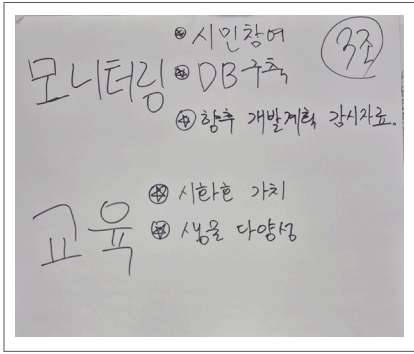 3조
모니터링
⍟ 시민참여
⍟ DB구축
⍟ 향후 개발계획 감시자료.
교육
⍟ 시화호 가치
⍟ 생물 다양성